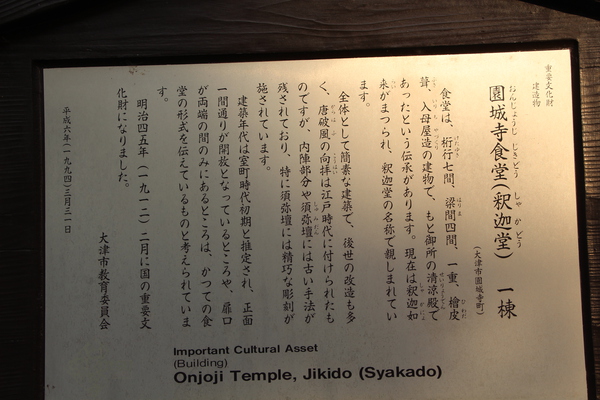 重要文化財
建造物
園城寺食堂(釈迦堂) 一棟
おんじょうじ じきどう しゃかどう
(大津市園城寺町)
食堂は、桁行七間、梁間四間、一重、檜皮
葺、入母屋造の建物で、もと御所の清涼殿で
あったという伝承があります。現在は釈迦如
来がまつられ、釈迦堂の名称で親しまれてい
ます。
全体として簡素な建築で、後世の改造も多
く、唐破風の向拝は江戸時代に付けられたも
のですが、内陣部分や須弥壇には古い手法が
残されており、特に須弥壇には精巧な彫刻が
施されています。
建築年代は室町時代初期と推定され、正面
一間通りが開放となっているところや、扉口
が両端の間のみにあるところは、かつての食
堂の形式を伝えているものと考えられていま
す。
明治四五年(一九一二)二月に国の重要文
化財になりました。
大津市教育委員会
平成六年(一九九四)三月三一日
Important Cultural Asset
(Building)
Onjoji Temple, Jikido (Syakado)